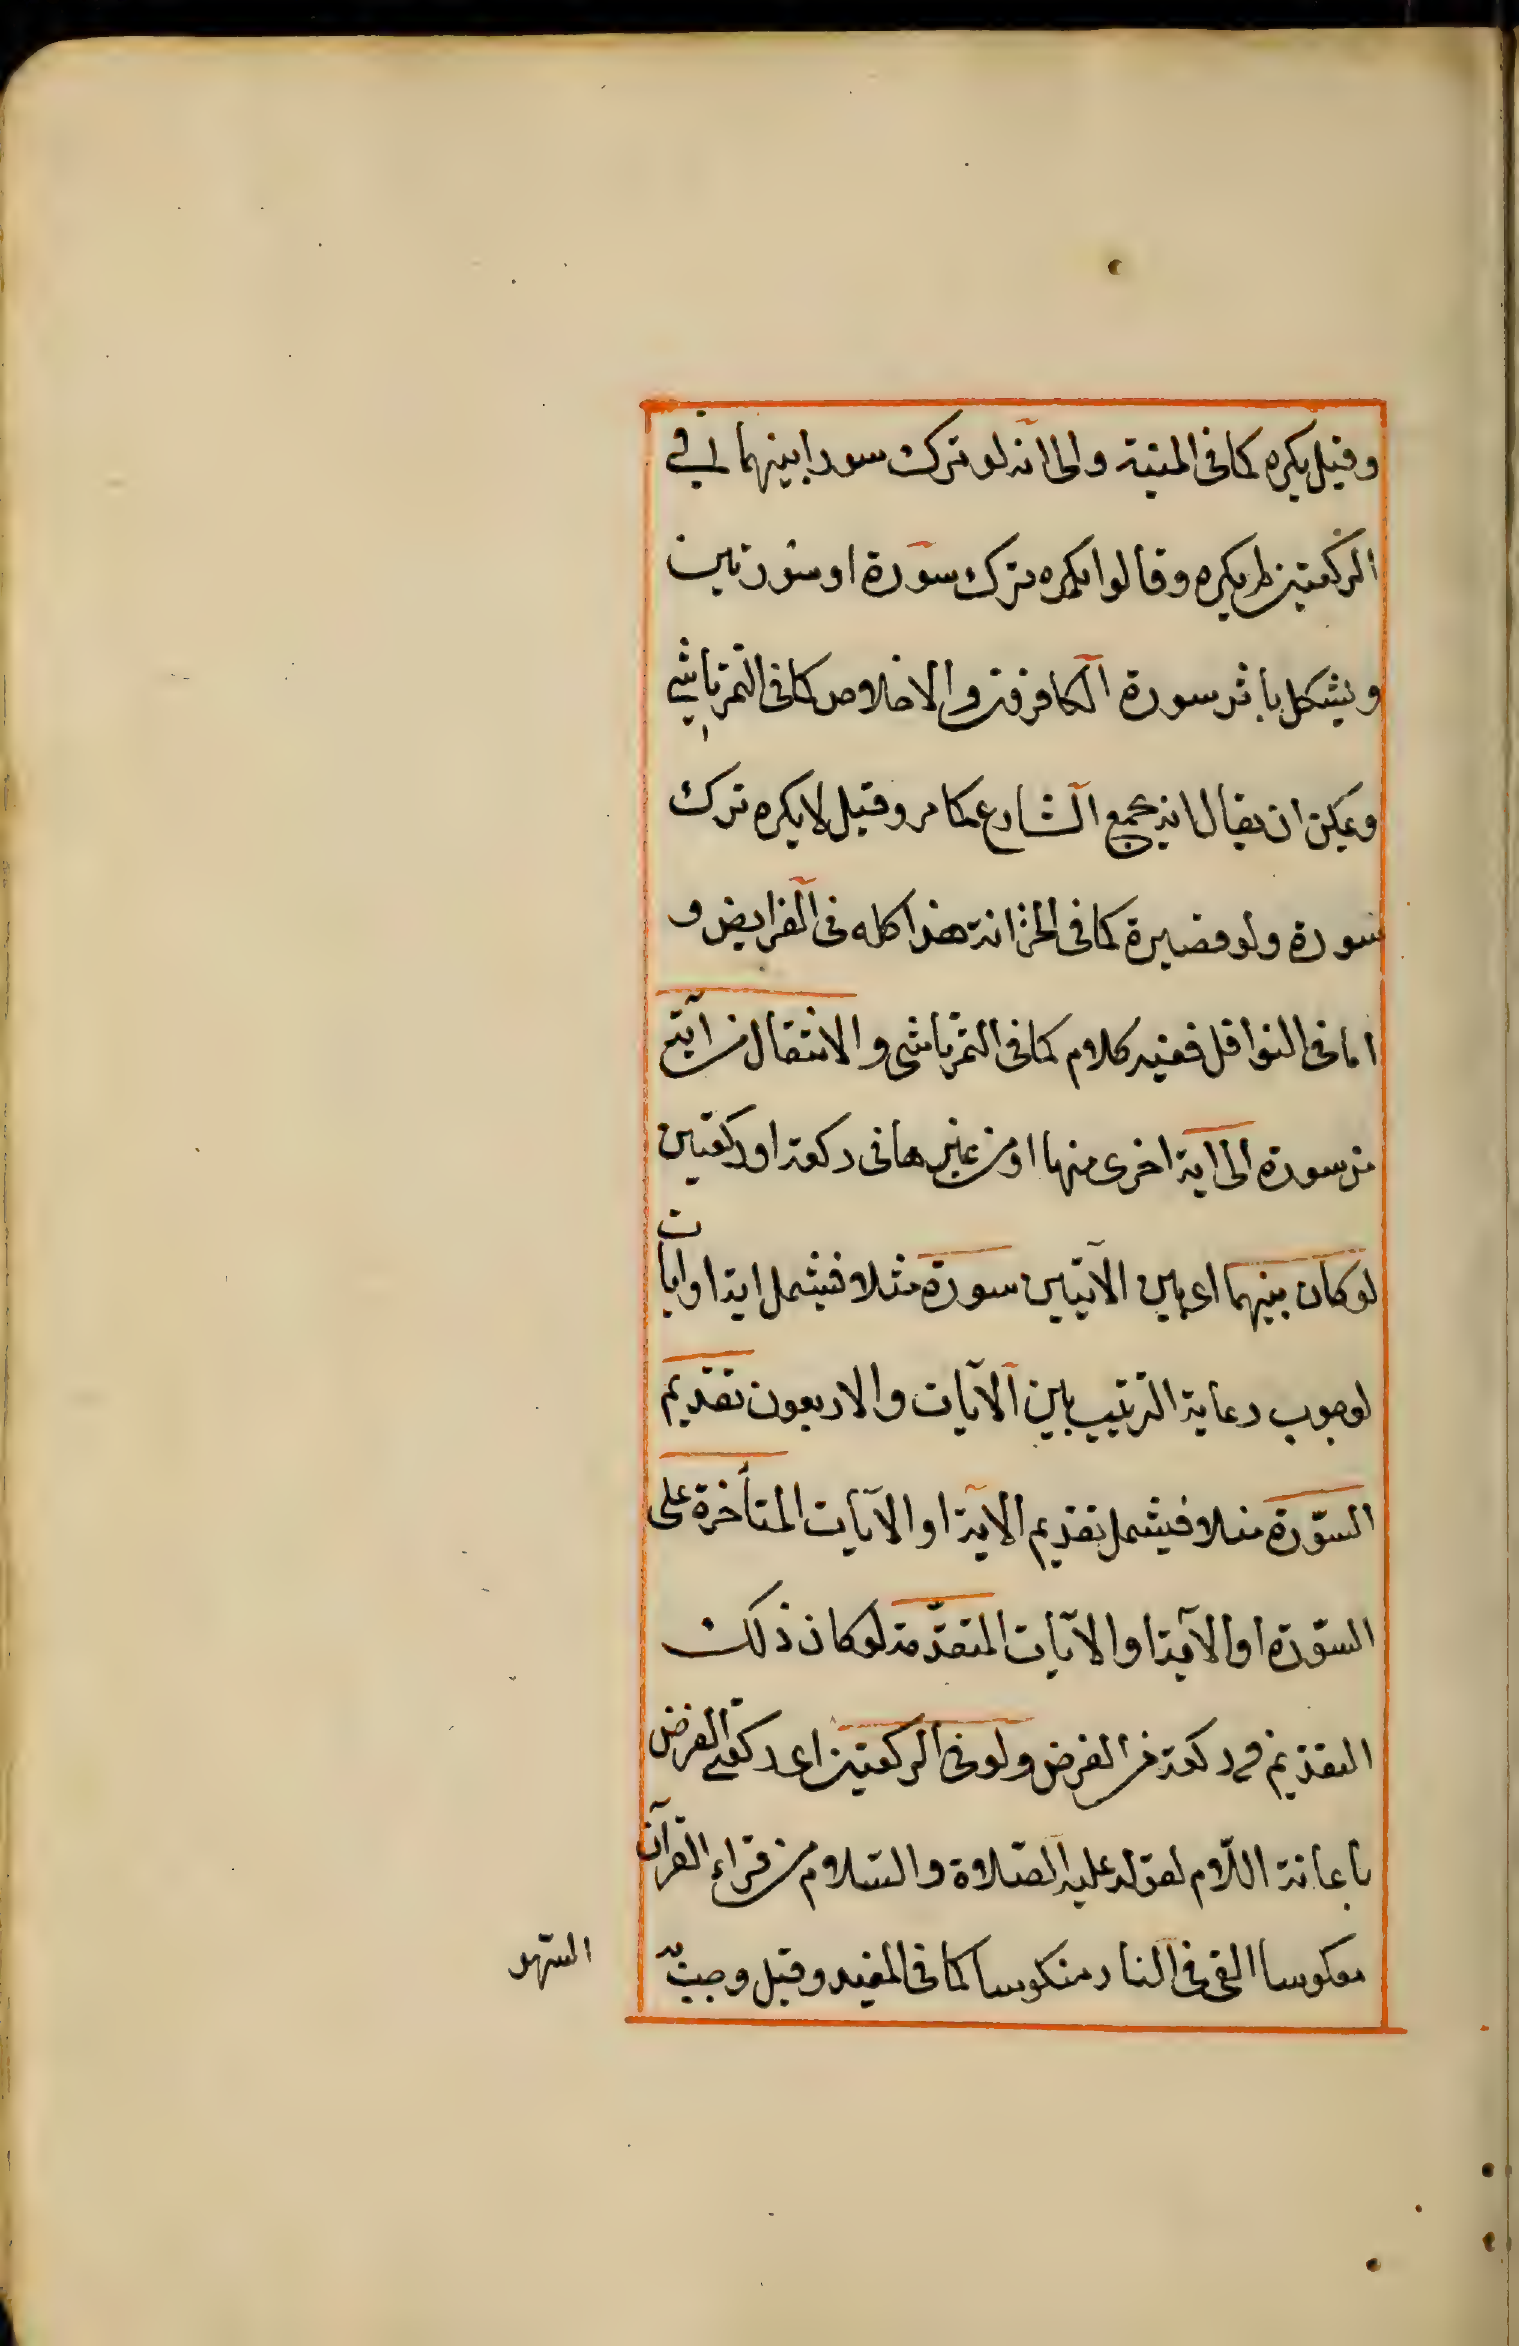 وقيل يكره كما فى المنية والى انه لو ترك سورا بينهما فى
الركعتين لم يكره وقالوا يكره ترك سورة او سورتين
ويشكل بأثر سورة الكافرون والاخلاص كما فى التمرتاشى
ويمكن ان يقال انه بجمع الشارع كما مر وقيل لا يكره ترك
سورة ولو قصيرة كما فى الخزانة هذا كله فى الفرايض و
اما فى النوافل ففيه كلام كما فى التمرتاشى والانتقال من آية
من سورة الى اية اخرى منها او من غيرها فى ركعة او ركعتين
لو كان بينهما اى بين الآيتين سورة مثلا فيشمل اية او ايات
لوجوب رعاية الترتيب بين الآيات والاربعون تقديم
السورة مثلا فيشمل تقديم الآية او الآيات المتأخرة على
السورة او الآية او الآيات المتقدمة لو كان ذلك
التقديم فى ركعة من الفرض ولو فى الركعتين اى ركعتى الفرض
باعانة اللام لقوله عليه الصلاة والسلام من قراء القرآن
معكوسا القى فى النار منكوسا كما فى المفيد وقيل وجبت
السهو